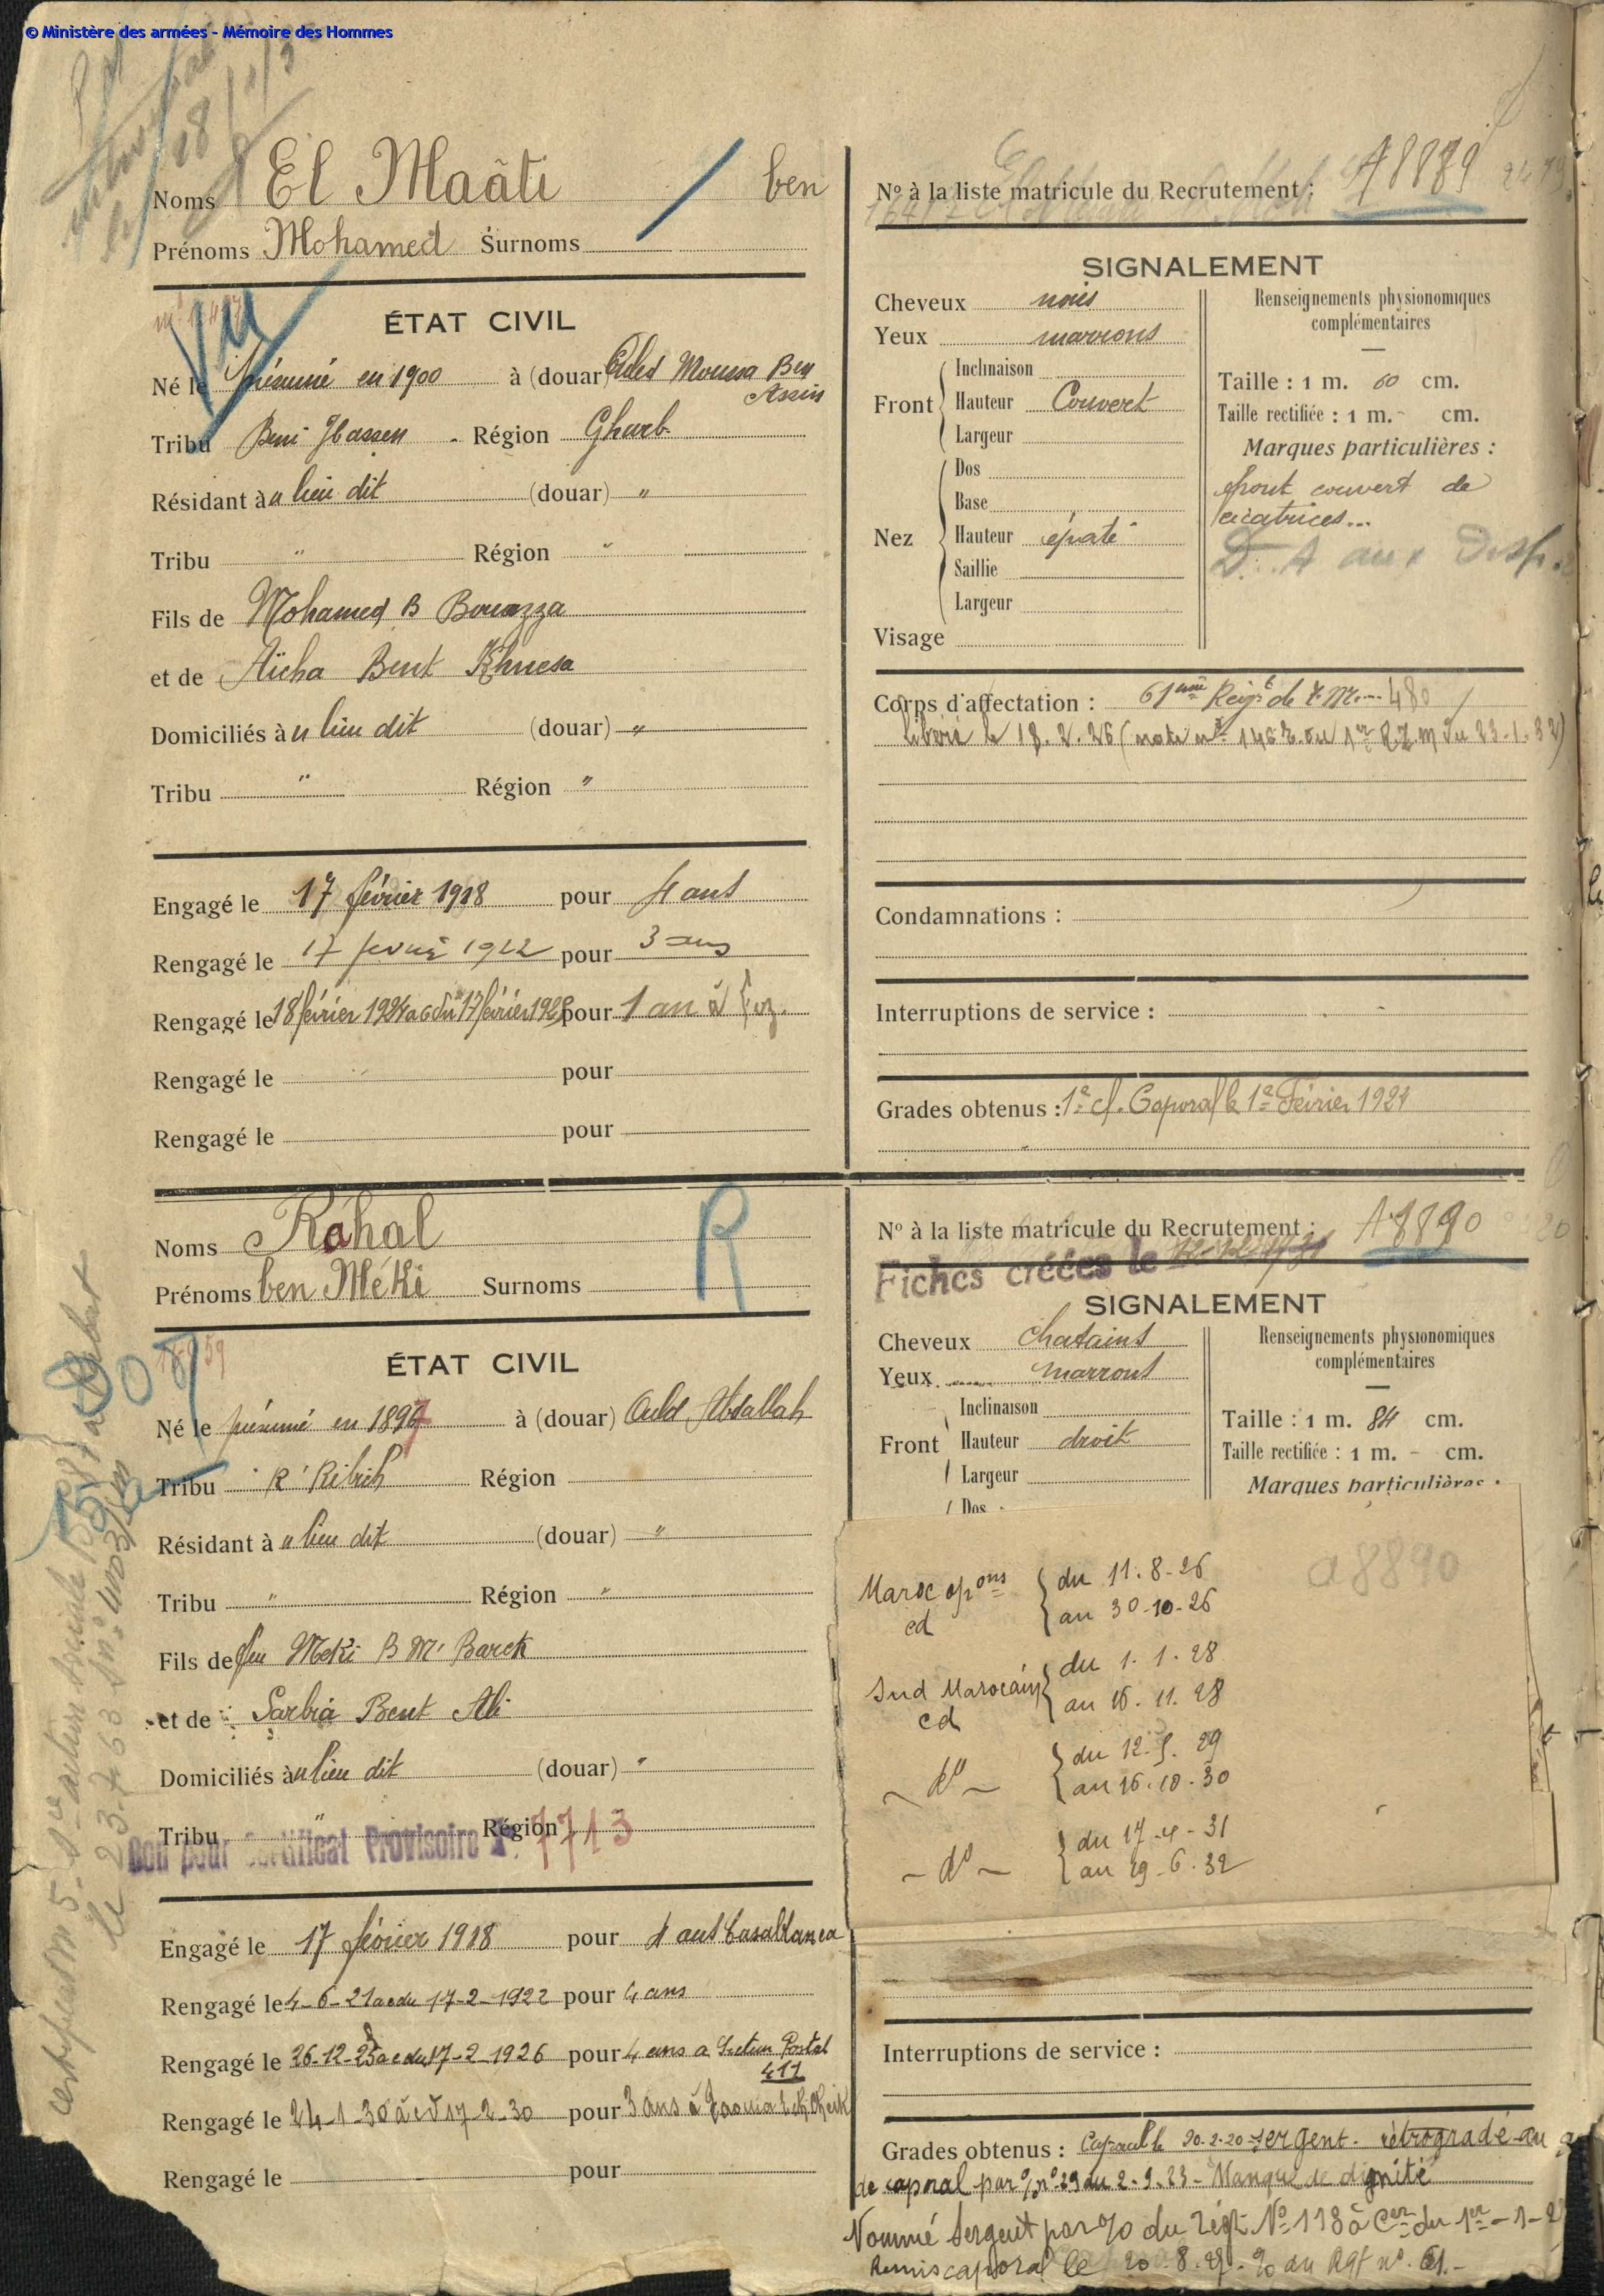 © Ministère des armées - Mémoire des Hommes
Noms El Maâti ben
Prénoms Mohamed Surnoms
ÉTAT CIVIL
Vu
Né le présumé en 1900 à (douar) Ouled Moussa Ben Assin
Tribu Beni Hassen - Région Gharb
Résidant à u lieu dit (douar) "
Tribu " Région "
Fils de Mohamed B Bouazza
et de Aïcha Bent Khnesa
Domiciliés à u lieu dit (douar) "
Tribu " Région "
Engagé le 17 février 1918 pour 4 ans
Rengagé le 17 fevrier 1922 pour 3 ans
Rengagé le 18 février 1924 a c du 17 février 1925 pour 1 an à Fez.
Rengagé le pour
Rengagé le pour
N° à la liste matricule du Recrutement : A 8889
SIGNALEMENT
Cheveux noirs
Yeux marrons
Front
Inclinaison
Hauteur Couvert
Largeur
Nez
Dos
Base
Hauteur épaté
Saillie
Largeur
Visage
Renseignements physionomiques
complémentaires
Taille : 1 m. 60 cm.
Taille rectifiée : 1 m. - cm.
Marques particulières :
front couvert de
cicatrices...
D. A aux Disp.
Corps d'affectation : 61ème Reigt de T. M. --- 480
libéré le 18.2.26 (note n° 1462 du 1er R.T.M du 23.1.32)
Condamnations :
Interruptions de service :
Grades obtenus : 1e cl. Caporal le 1e Février 1924
Noms Rahal
Prénoms ben Méki Surnoms
R
ÉTAT CIVIL
Né le présumé en 1897 à (douar) Ouled Abdallah
Tribu R' Ribich Région
Résidant à u lieu dit (douar) "
Tribu " Région "
Fils de feu Meki B M' Barek
et de Sarbia Bent Ali
Domiciliés à u lieu dit (douar) "
Tribu " Région
Bon pour Certificat Provisoire 7713
Engagé le 17 février 1918 pour 4 ans Casablanca
Rengagé le 4-6-21 a c du 17-2-1922 pour 4 ans
Rengagé le 26-12-25 a c du 17-2-1926 pour 4 ans a Secteur Postal
411
Rengagé le 24-1-30 à c d 17-2-30 pour 3 ans à Zaouia ech Cheik
Rengagé le pour
N° à la liste matricule du Recrutement : A 8890
Fiches créées le
SIGNALEMENT
Cheveux chatains
Yeux marrons
Front
Inclinaison
Hauteur droit
Largeur
Dos
Renseignements physionomiques
complémentaires
Taille : 1 m. 84 cm.
Taille rectifiée : 1 m. - cm.
Marques particulières :
a 8890
Maroc opons cd du 11.8-26
au 30-10-26
Sud Marocain cd du 1.1.28
au 16.11.28
- d° - du 12.5.29
au 16.10.30
- d° - du 17-4-31
au 29-6-32
Interruptions de service :
Grades obtenus : Caporal le 20-2-20 - sergent. rétrogradé au g
de caporal par % n° 29 du 2-9-23 - Manque de dignité
Nommé Sergent par % du régt N° 118 à Cer du 1er-1-2
Remis caporal le 20-8-27. % du Rgt n° 61.-